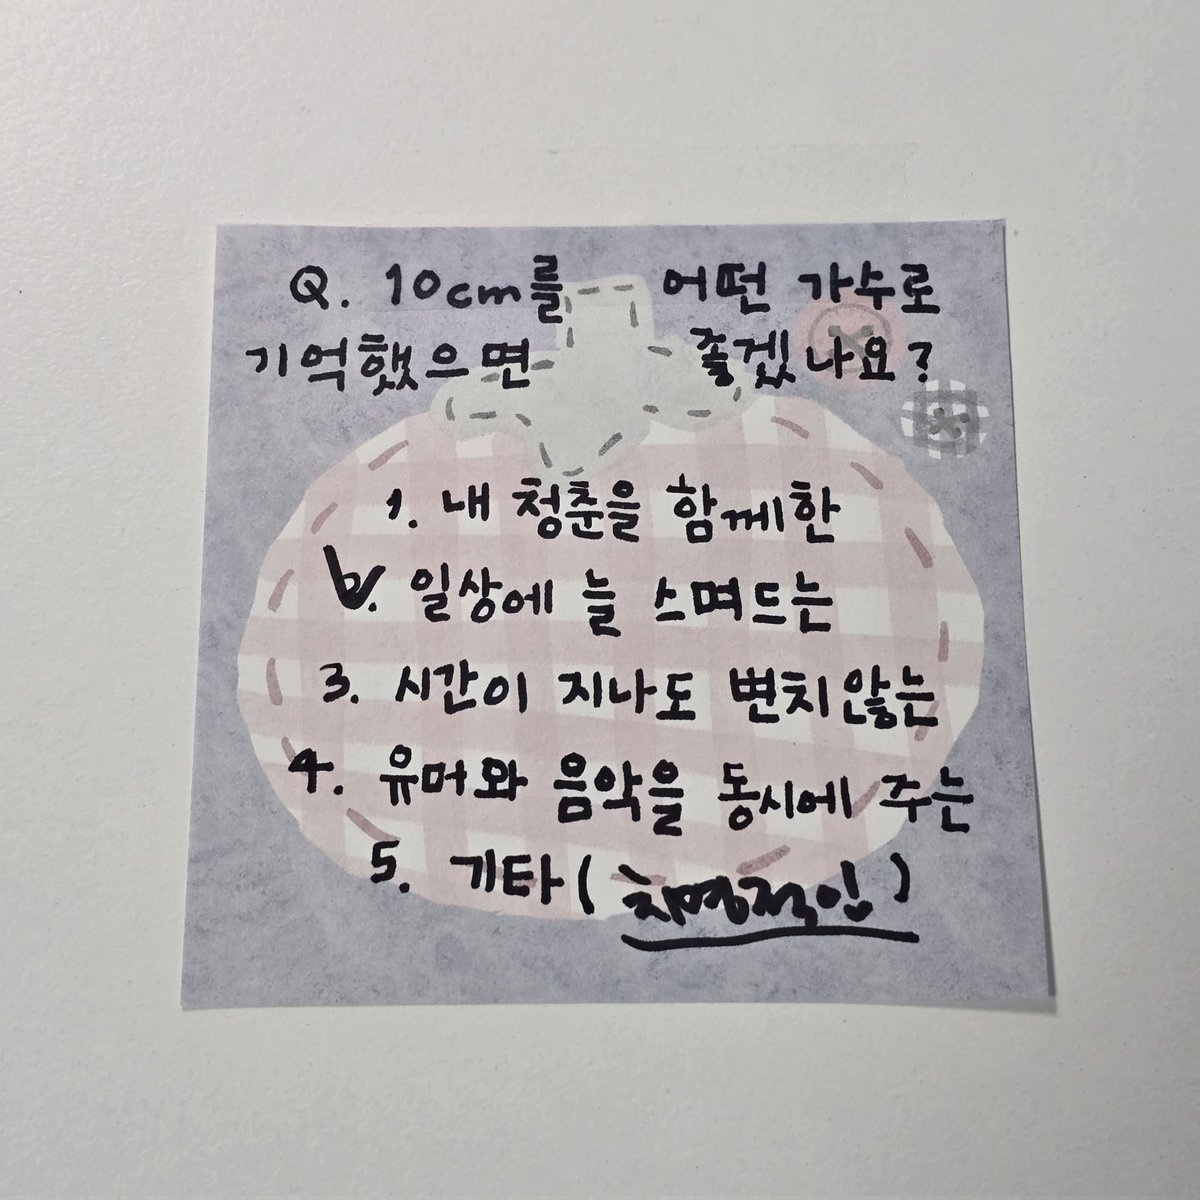 Q. 10cm를 어떤 가수로
기억했으면 좋겠나요?
1. 내 청춘을 함께한
2. 일상에 늘 스며드는
3. 시간이 지나도 변치않는
4. 유머와 음악을 동시에 주는
5. 기타 (치명적인)